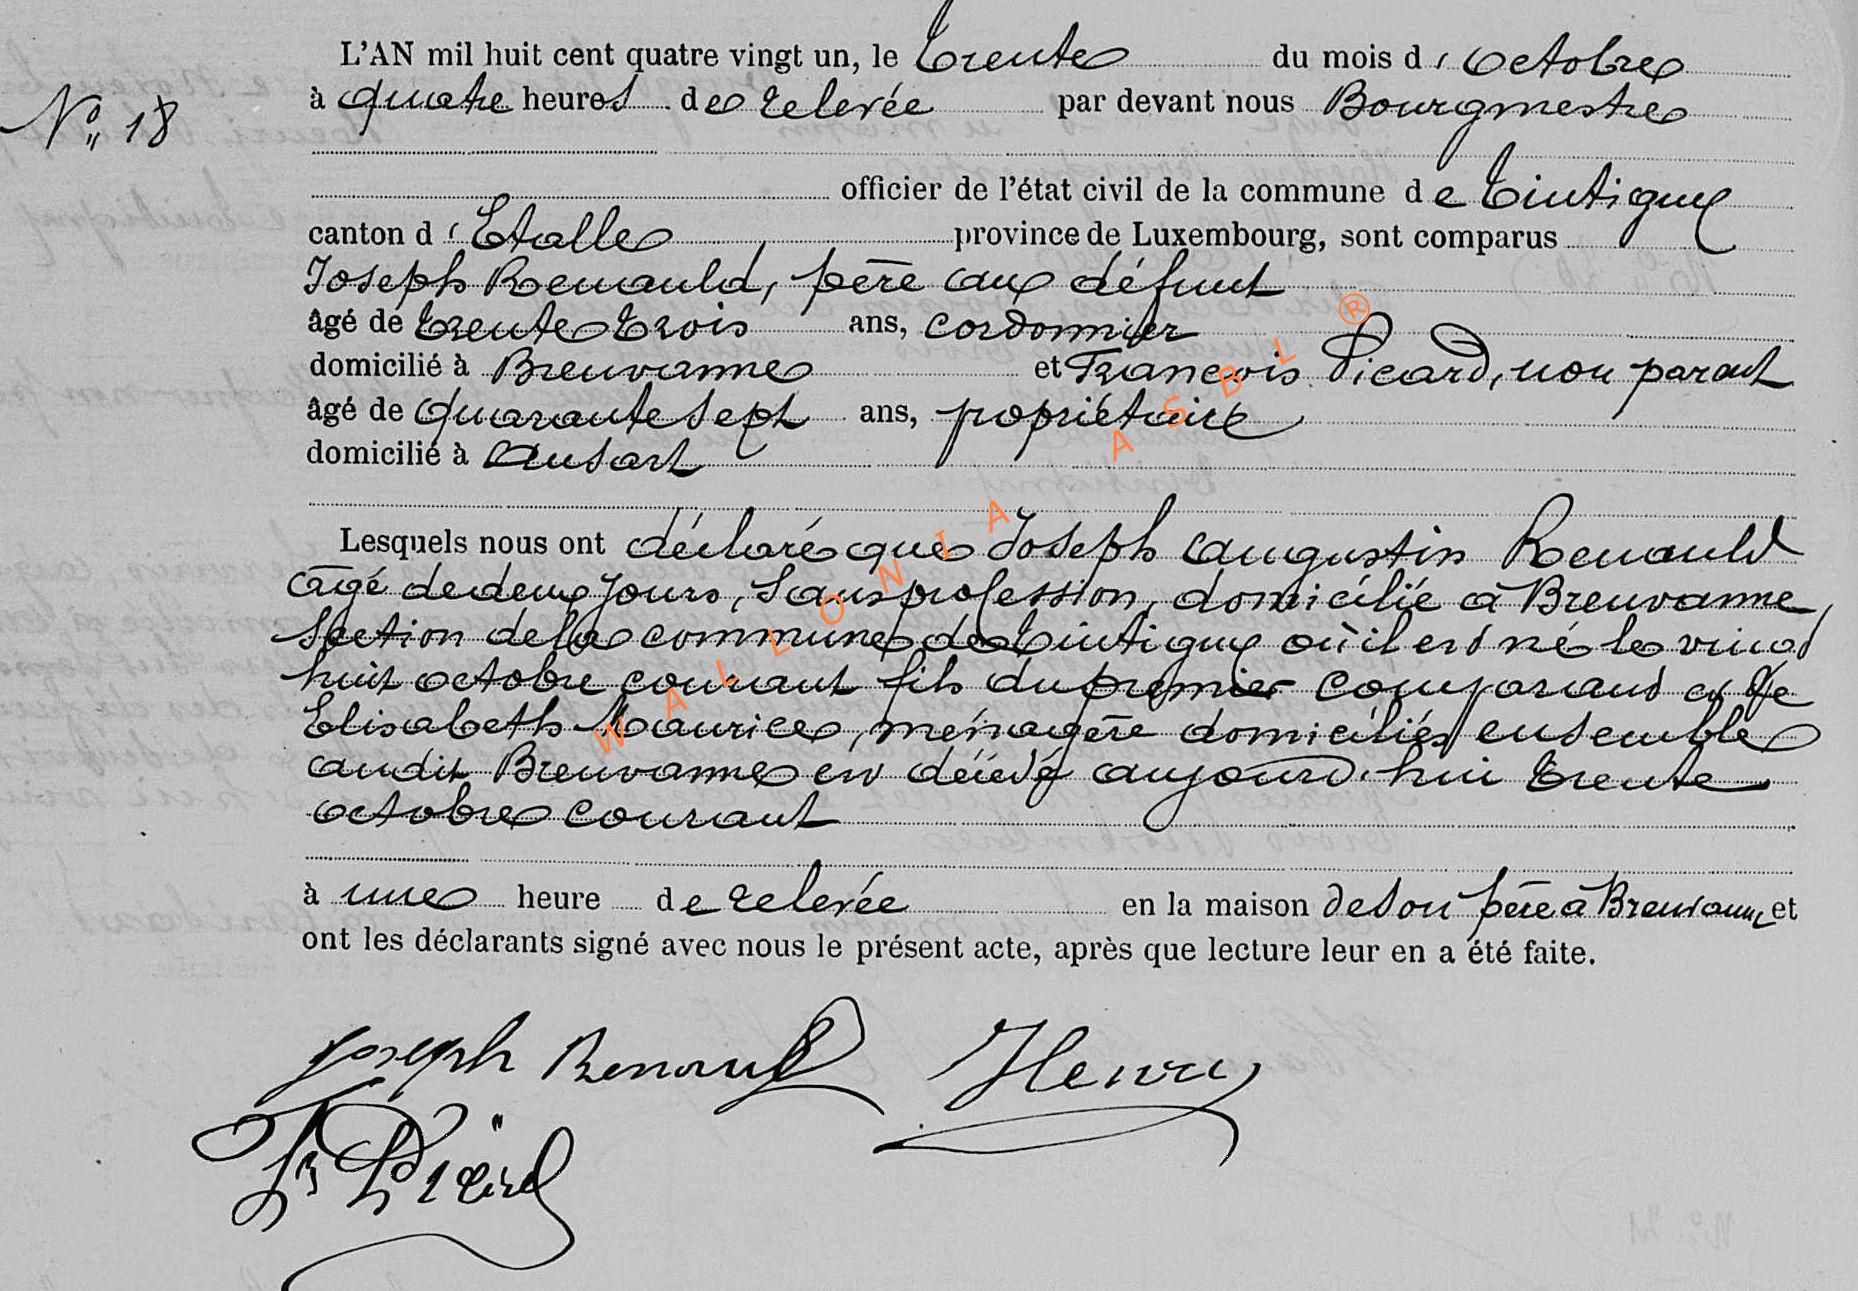 L'AN mil huit cent quatre vingt un, le trente du mois d'octobre
N° 18
à quatre heures de relevée par devant nous Bourgmestre
officier de l'état civil de la commune de Tintigny
canton d'Etalle province de Luxembourg, sont comparus
Joseph Renauld, père au défunt
âgé de trente trois ans, cordonnier
domicilié à Breuvanne et François Picard, non parent
âgé de quarante sept ans, popriétaire
domicilié à Ansart
Lesquels nous ont déclaré que Joseph Augustin Renauld
âgé de deux jours, sans profession, domicilié à Breuvanne,
section de la commune de Tintigny où il est né le vingt
huit octobre courant fils du premier comparant et de
Elisabeth Maurice, ménagère domiciliés ensemble
audit Breuvanne est décédé aujourd'hui trente
octobre courant
à une heure de relevée en la maison de son père à Breuvanne et
ont les déclarants signé avec nous le présent acte, après que lecture leur en a été faite.
Joseph Renauld Henry
Fr Picard
WALLONIA ASBL ®